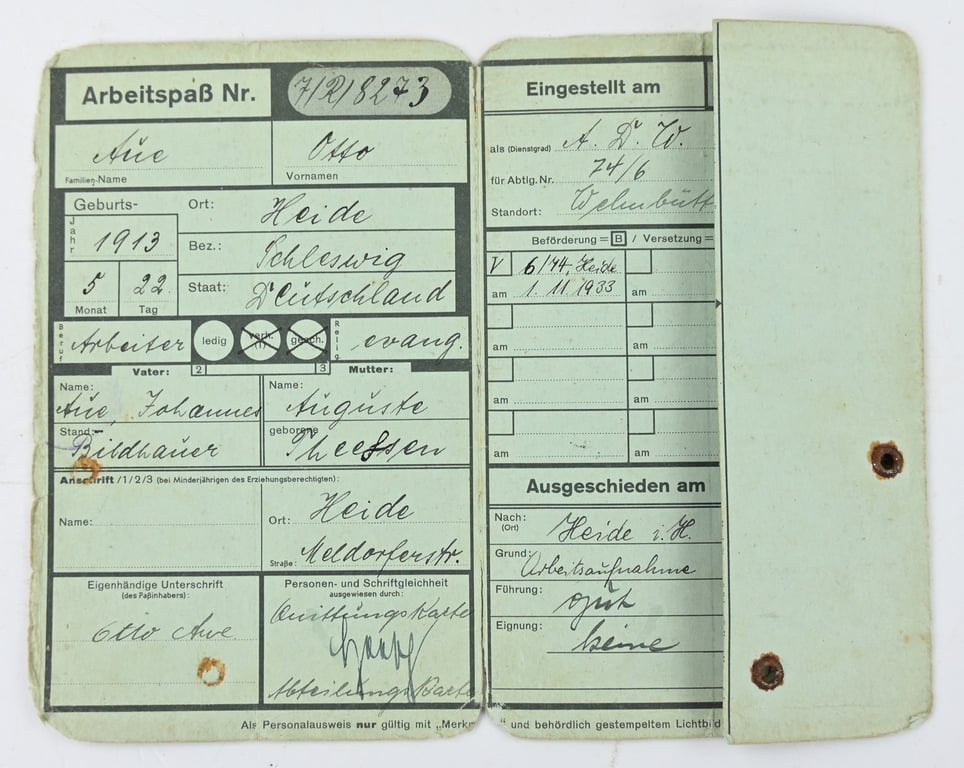 Arbeitspaß Nr. 7/2/8273
Aue Otto
Familien-Name Vornamen
Geburts-
Jahr 1913
5 22
Monat Tag
Ort: Heide
Bez.: Schleswig
Staat: Deutschland
Beruf Arbeiter ledig verh. (1) gesch. Relig. evang.
Vater: 2 3 Mutter:
Name: Aue, Johannes
Stand: Bildhauer
Name: Auguste
geborene Theessen
Anschrift /1/2/3 (bei Minderjährigen des Erziehungsberechtigten):
Name:
Ort: Heide
Straße: Meldorferstr.
Eigenhändige Unterschrift
(des Paßinhabers):
Otto Aue
Personen- und Schriftgleichheit
ausgewiesen durch:
Quittungskarte
Abteilungskarte
Als Personalausweis nur gültig mit „Merk
Eingestellt am
als (Dienstgrad) A. D. W.
für Abtlg. Nr. 74/6
Standort:
Beförderung = B / Versetzung =
V 6/74, Heide
am 1. 11. 1933 am
am am
am am
am am
Ausgeschieden am
Nach: (Ort) Heide i. H.
Grund: Arbeitsaufnahme
Führung: gut
Eignung: keine
" und behördlich gestempeltem Lichtbild